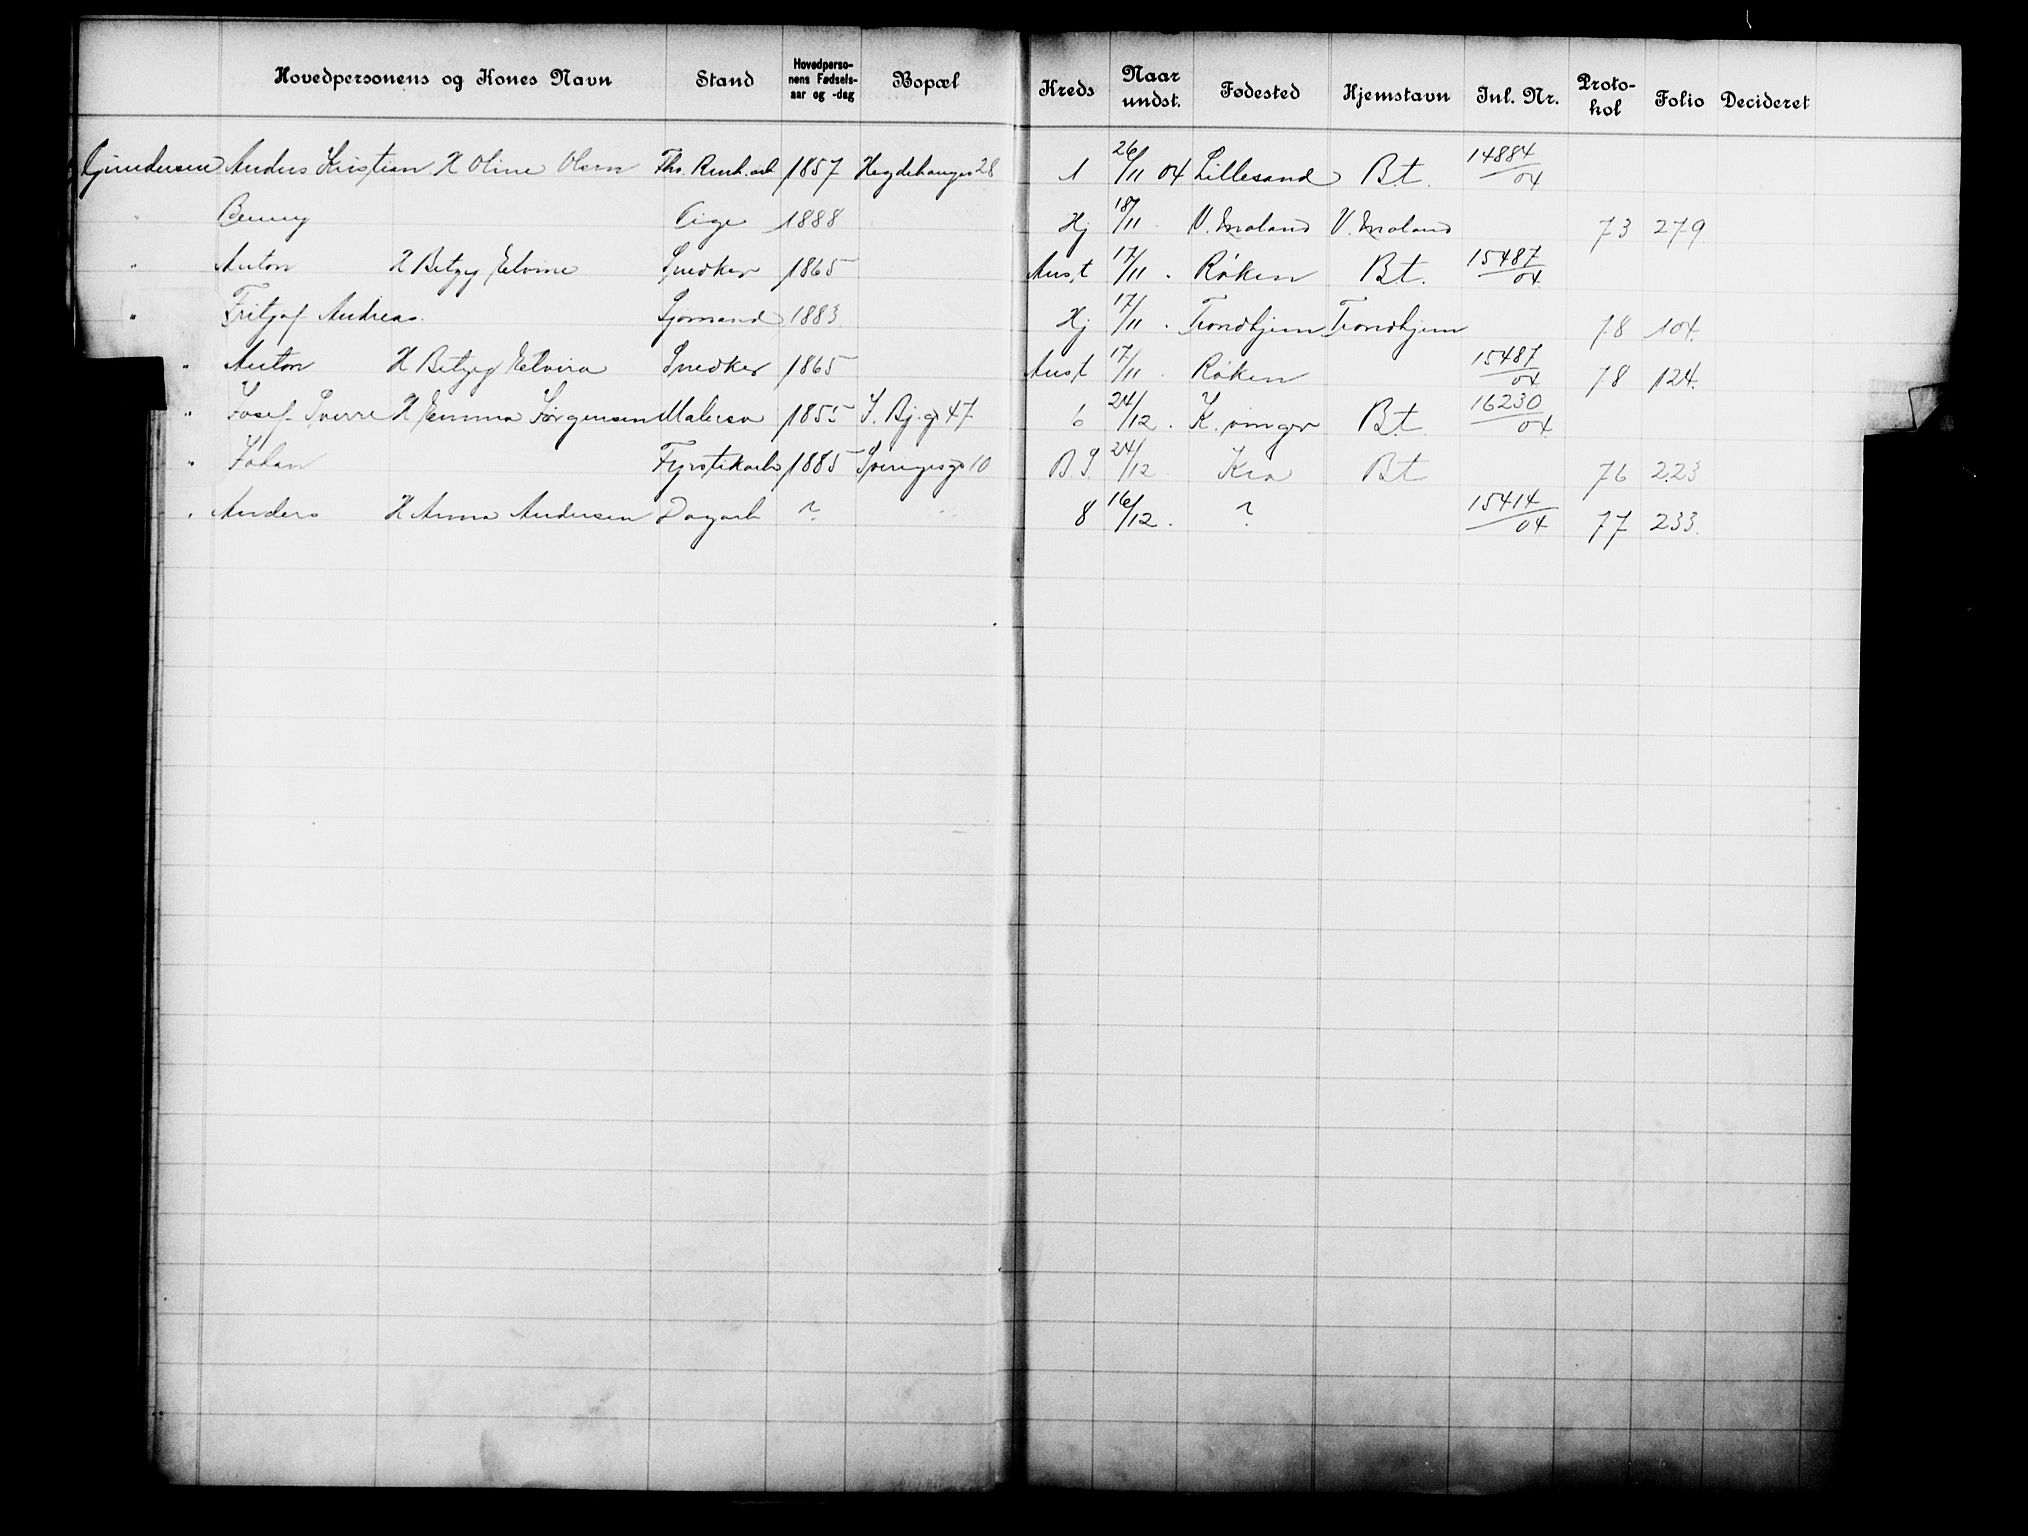 Hovedpersonens og Kones Navn Stand Hovedperso- nens Fødsels- aar og -dag Bopæl Kreds Naar undst. Fødested Hjemstavn Inl. Nr. Proto- kol Folio Decideret
Gundersen Anders Kristian H Oline Olsen Ths. Renh. arb 1857 Hegdehaugs 28 1 26/11 04 Lillesand Bt. 14884/04
" Benny Pige 1888 Hj 18/11 V. Moland V. Moland 73 279
" Anton H Betzy Elvine Snedker 1865 Aust 17/11 . Røken Bt. 15487/04
" Fritjof Andreas. Sjømand 1883 Hj 17/11 . Trondhjem Trondhjem 78 104.
" Anton H Betzy Elvira Snedker 1865 Aust 17/11 . Røken 15487/04 78 124.
" Josef Sverre H Emma Jørgensen Malersv 1855 S. Bj. g 47 6 24/12 . K. vinger Bt. 16230/04
" Johan Fyrstikarb 1885 Sverigesgd 10 B. S 24/12 Kra Bt 76 223
" Anders H Anna Andersen Dagarb ? 8 16/12 . ? 15414/04 77 233.